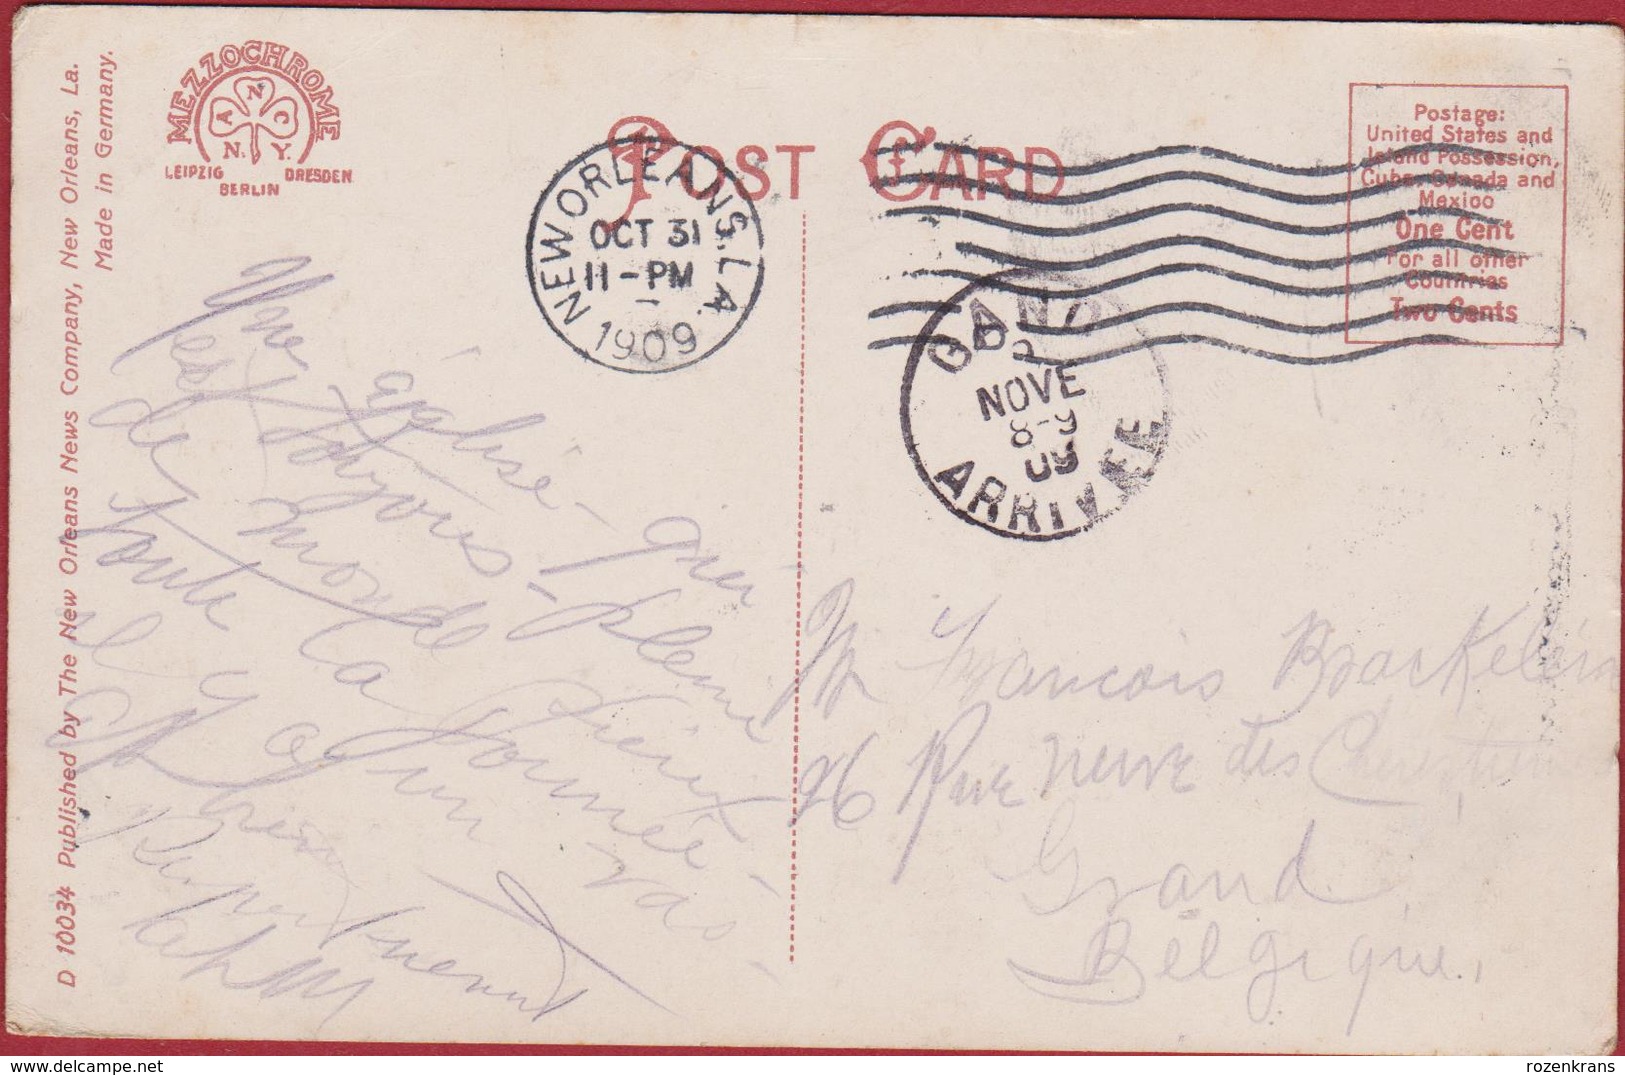 D 10034 Published by The New Orleans News Company, New Orleans, La.
Made in Germany.
MEZZOCHROME
A N C
N. Y.
LEIPZIG DRESDEN
BERLIN
POST CARD
NEW ORLEANS, LA.
OCT 31
11-PM
1909
GAND
NOVE
8-9
09
ARRIVEE
Postage:
United States and
Island Possession,
Cuba, Canada and
Mexico
One Cent
For all other
Countries
Two Cents
Une église - qui
est toujours - pleine
de monde
toute la journée -
il y a un
Mr Francois
26 Rue neuve des
Gand
Belgique.
rozenkrans